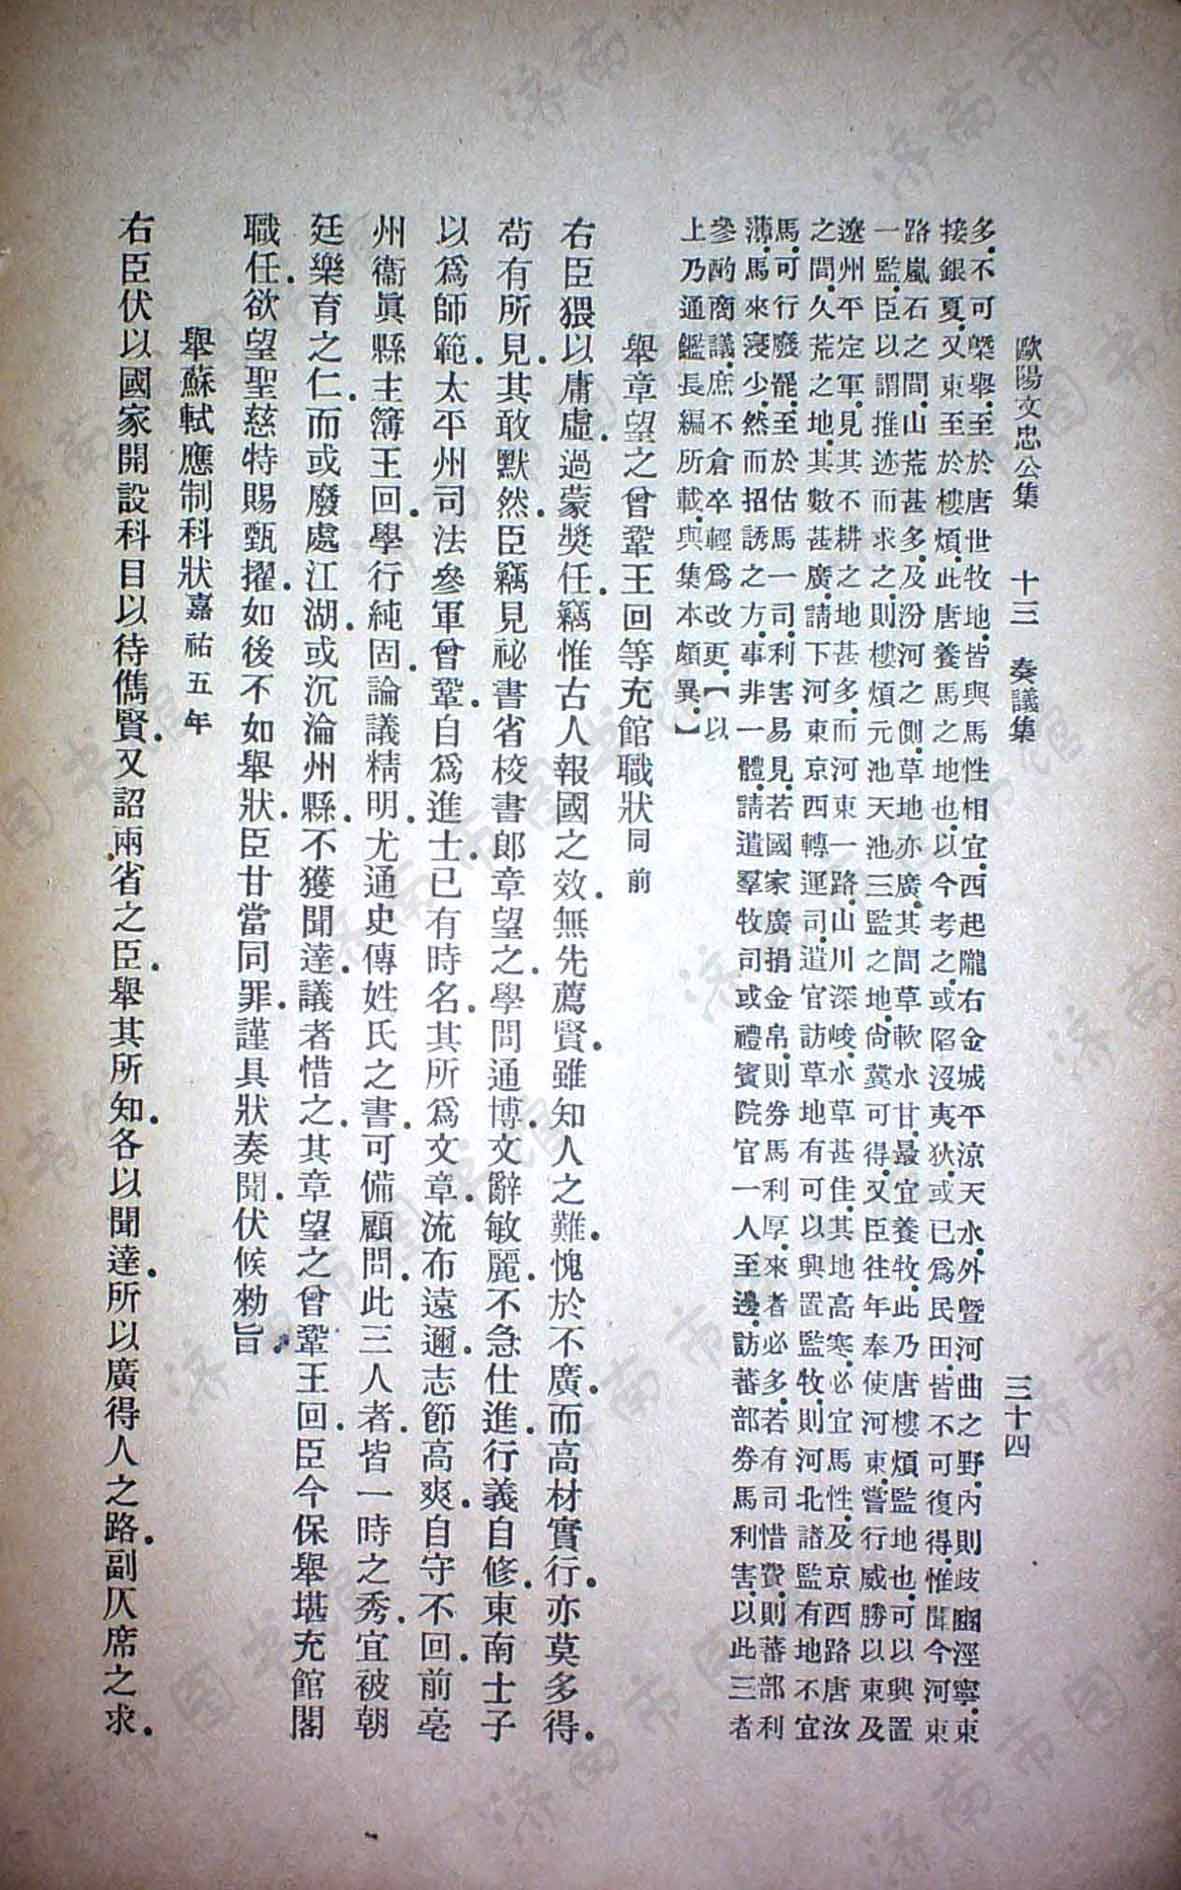 歐陽文忠公集　十三　奏議集　三十四
多。不可槩舉。至於唐世牧地。皆與馬性相宜。西起隴右金城平涼天水。外曁河曲之野。內則歧豳涇寧。東
接銀夏。又東至於樓煩。此唐養馬之地也。以今考之。或陷沒夷狄。或已爲民田。皆不可復得。惟聞今河東
路嵐石之間。山荒甚多。及汾河之側。草地亦廣。其間草軟水甘。最宜養牧。此乃唐樓煩監地也。可以興置
一監。臣以謂推迹而求之。則樓煩元池天池三監之地。尙冀可得。又臣往年奉使河東。嘗行威勝以東及
遼州平定軍。見其不耕之地甚多。而河東一路。山川深峻。水草甚佳。其地高寒。必宜馬性。及京西路唐汝
之間。久荒之地。其數甚廣。請下河東京西轉運司。遣官訪草地有可以興置監牧。則河北諸監有地不宜
馬。可行廢罷。至於估馬一司。利害易見。若國家廣捐金帛。則券馬利厚。來者必多。若有司惜費。則蕃部利
薄。馬來寖少。然而招誘之方。事非一體。請遣羣牧司或禮賓院官一人至邊。訪蕃部券馬利害。以此三者
參酌商議。庶不倉卒輕爲改更。【以
上乃通鑑長編所載。與集本頗異。】
舉章望之曾鞏王回等充館職狀同前
右臣猥以庸虛。過蒙獎任。竊惟古人報國之效。無先薦賢。雖知人之難。愧於不廣。而高材實行。亦莫多得。
苟有所見。其敢默然。臣竊見祕書省校書郎章望之。學問通博。文辭敏麗。不急仕進。行義自修。東南士子
以爲師範。太平州司法參軍曾鞏。自爲進士。已有時名。其所爲文章。流布遠邇。志節高爽。自守不回。前亳
州衞眞縣主簿王回。學行純固。論議精明。尤通史傳姓氏之書。可備顧問。此三人者。皆一時之秀。宜被朝
廷樂育之仁。而或廢處江湖。或沉淪州縣。不獲聞達。議者惜之。其章望之曾鞏王回。臣今保舉堪充館閣
職任。欲望聖慈特賜甄擢。如後不如舉狀。臣甘當同罪。謹具狀奏聞。伏候勑旨。
舉蘇軾應制科狀嘉祐五年
右臣伏以國家開設科目。以待儁賢。又詔兩省之臣。舉其所知。各以聞達。所以廣得人之路。副仄席之求。